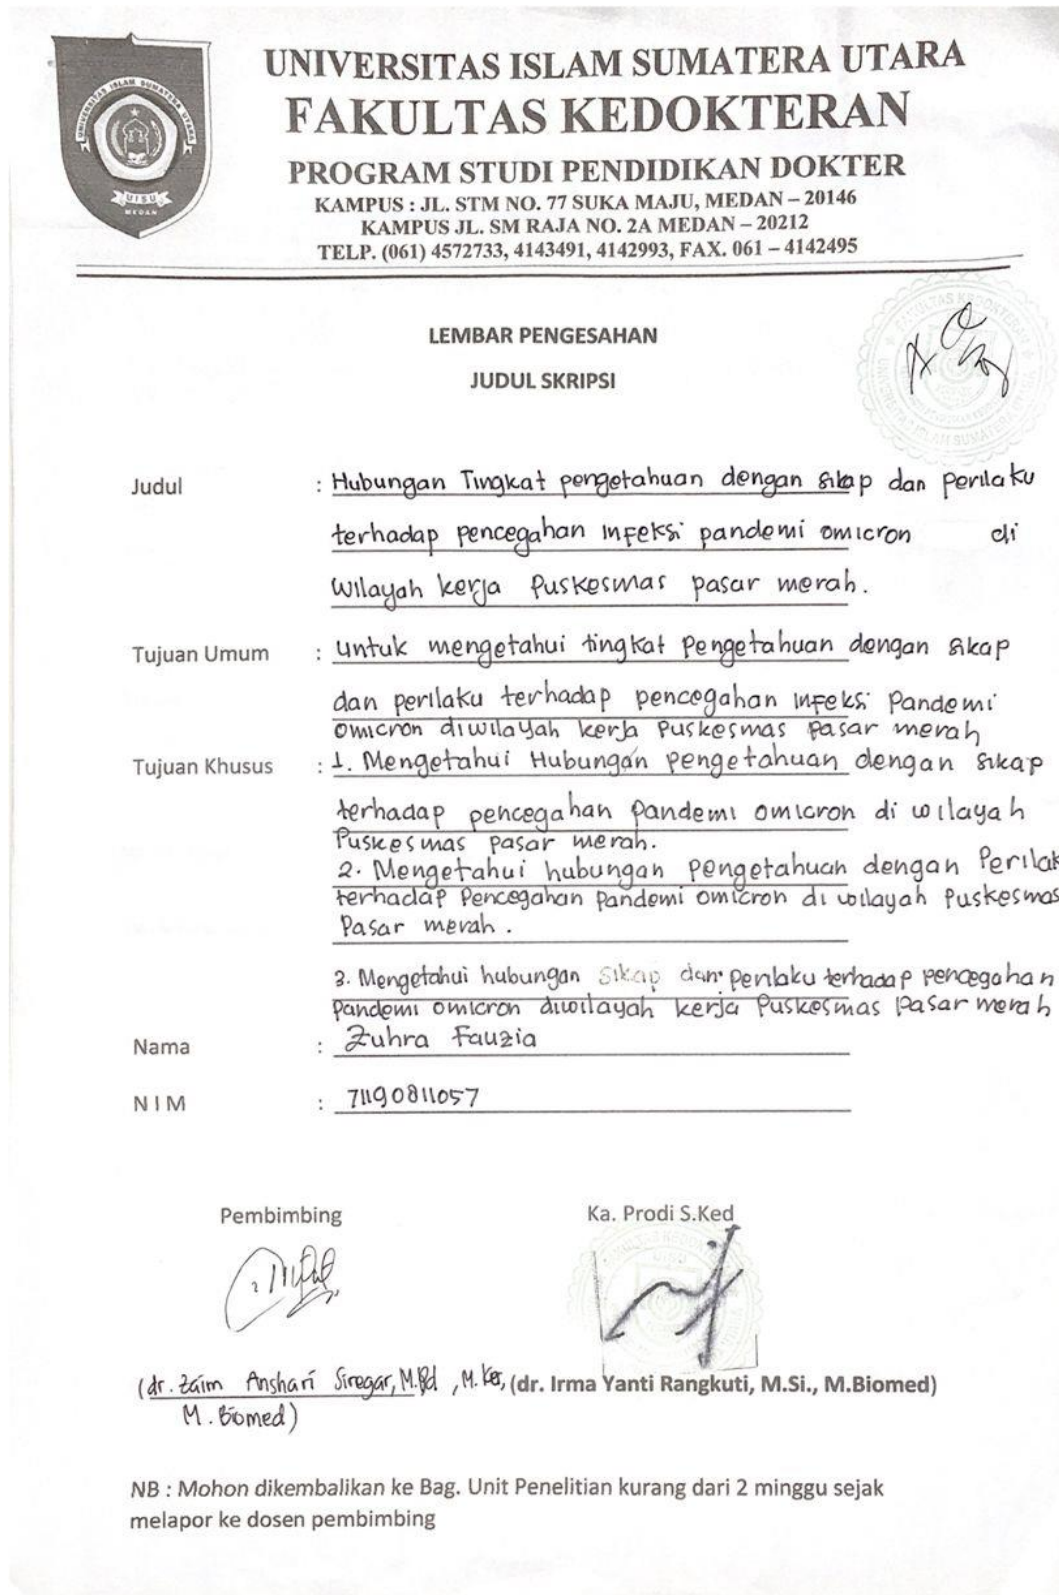 UNIVERSITAS ISLAM SUMATERA UTARA
UISU
MEDAN
UNIVERSITAS ISLAM SUMATERA UTARA
FAKULTAS KEDOKTERAN
PROGRAM STUDI PENDIDIKAN DOKTER
KAMPUS : JL. STM NO. 77 SUKA MAJU, MEDAN – 20146
KAMPUS JL. SM RAJA NO. 2A MEDAN – 20212
TELP. (061) 4572733, 4143491, 4142993, FAX. 061 – 4142495
LEMBAR PENGESAHAN
JUDUL SKRIPSI
Judul : Hubungan Tingkat pengetahuan dengan sikap dan perilaku
terhadap pencegahan infeksi pandemi omicron di
Wilayah kerja Puskesmas pasar merah.
Tujuan Umum : untuk mengetahui tingkat Pengetahuan dengan sikap
dan perilaku terhadap pencegahan infeksi Pandemi
omicron diwilayah kerja Puskesmas pasar merah
Tujuan Khusus : 1. Mengetahui Hubungan pengetahuan dengan sikap
terhadap pencegahan Pandemi omicron di wilayah
Puskesmas pasar merah.
2. Mengetahui hubungan pengetahuan dengan Perilak
terhadap Pencegahan pandemi omicron di wilayah Puskesmas
Pasar merah.
3. Mengetahui hubungan Sikap dan perilaku terhadap pencegahan
Pandemi omicron diwilayah kerja Puskesmas Pasar merah
Nama : Zuhra Fauzia
N I M : 71190811057
Pembimbing Ka. Prodi S.Ked
(dr. Zaim Anshari Siregar, M.Pd, M.Ke, (dr. Irma Yanti Rangkuti, M.Si., M.Biomed)
M. Biomed)
NB : Mohon dikembalikan ke Bag. Unit Penelitian kurang dari 2 minggu sejak
melapor ke dosen pembimbing